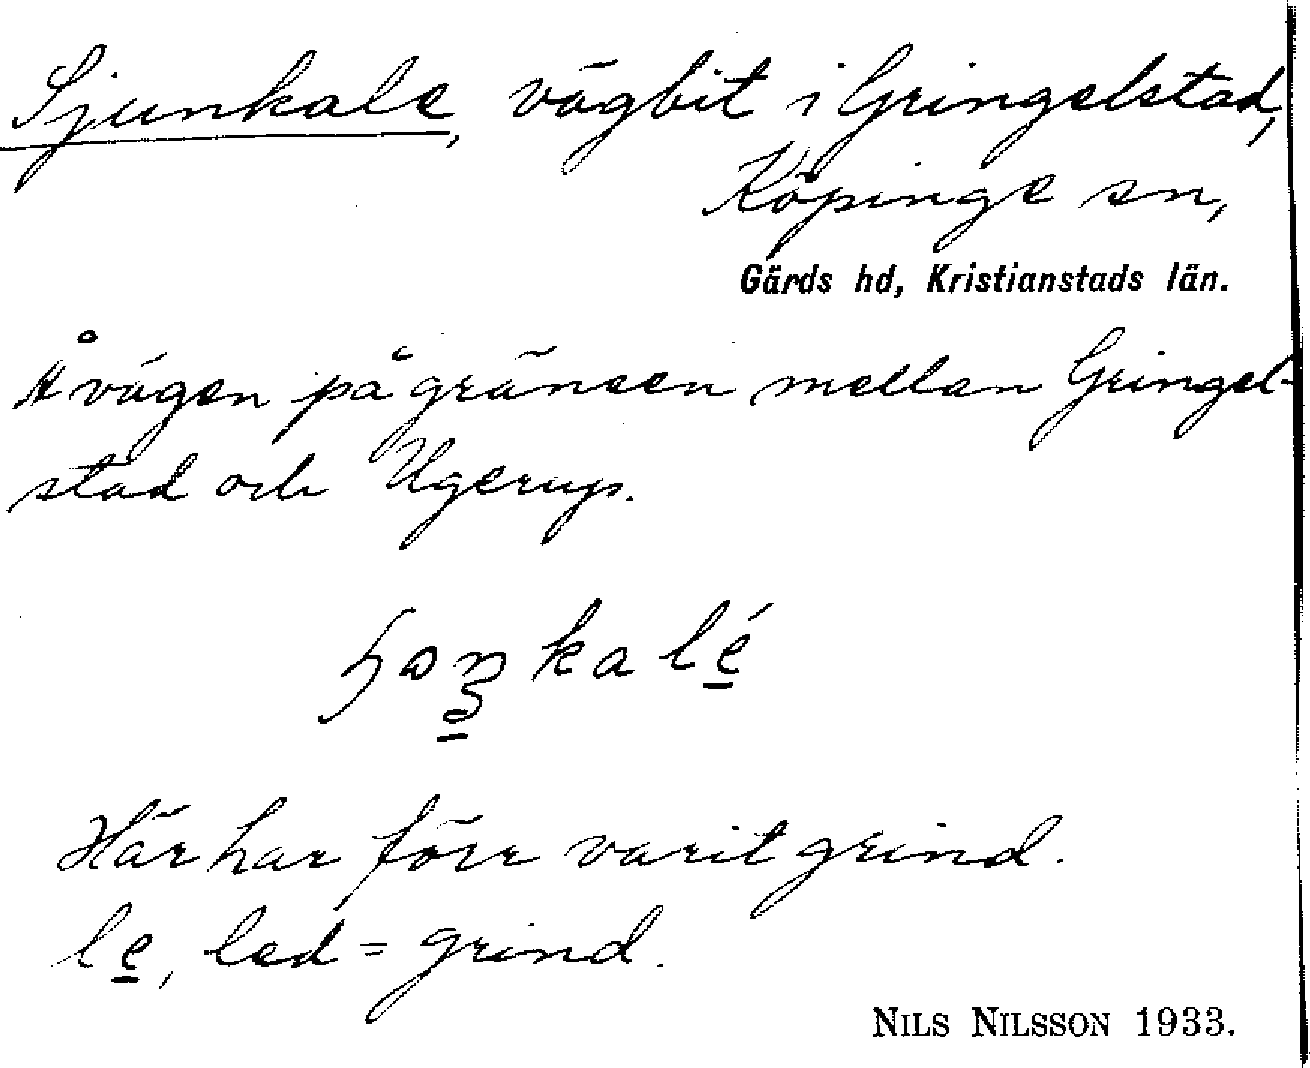 Sjunkale, vägbit i Gringelstad,
Köpinge sn,
Gärds hd, Kristianstads län.
Å vägen på gränsen mellan Gringel-
stad och Ugerup.
Här har förr varit grind.
le, led = grind.
NILS NILSSON 1933.